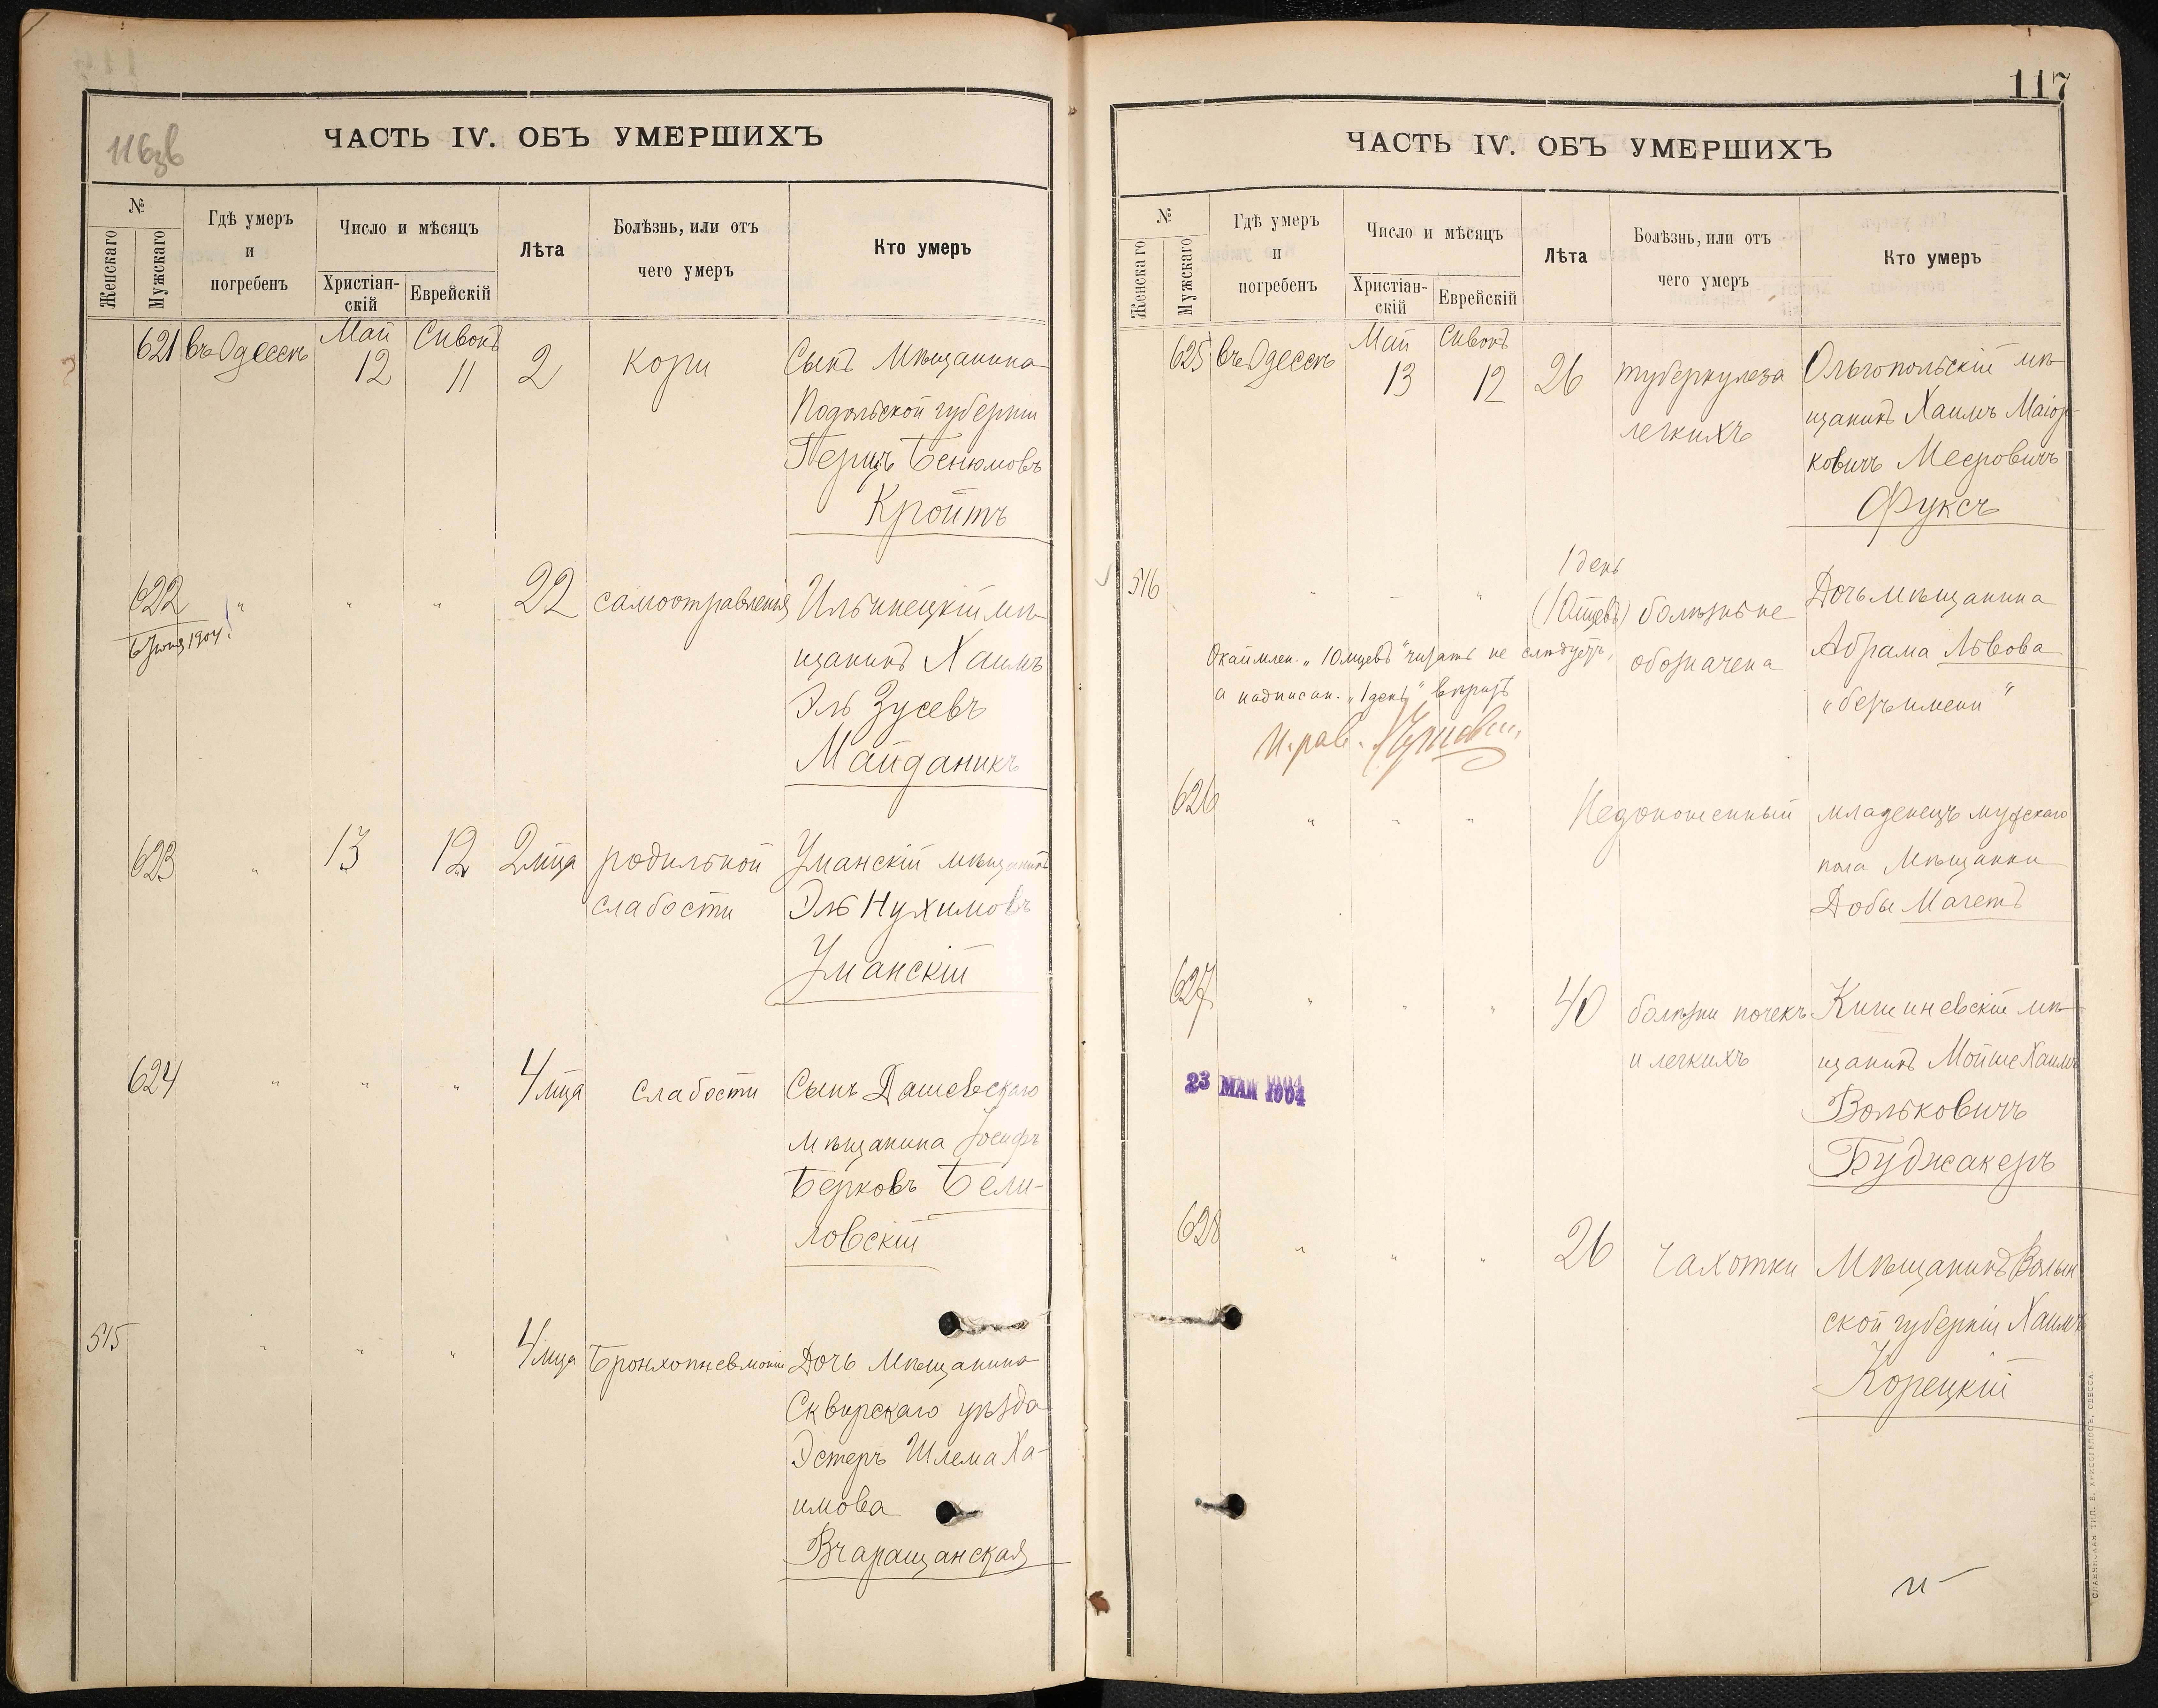 116зв
ЧАСТЬ IV. ОБЪ УМЕРШИХЪ
№
Женскаго
Мужскаго
Гдѣ умеръ
и
погребенъ
Число и мѣсяцъ
Христіан-
скій
Еврейскій
Лѣта
Болѣзнь, или отъ
чего умеръ
Кто умеръ
621 въ Одессѣ Май 12 Сивонъ 11 2 кори Сынъ Мѣщанина
Подольской губерніи
Перецъ Бенюмовъ
Кройтъ
622 " " " 22 самоотравленія Ильинецкій мѣ-
6 Іюня 1904 г.
щанинъ Хаимъ
Эль Зусевъ
Майданикъ
623 " 13 12 2 мца родильной Уманскій мѣщанинъ
слабости Эль Нухимовъ
Уманскій
624 " " " 4 мца слабости Сынъ Дашевскаго
мѣщанина Іосифъ
Берковъ Бели-
ловскій
515 " " " 4 мца Бронхопневмоніи Дочь Мѣщанина
Сквирскаго уѣзда
Эстеръ Шлема Ха-
имова
Вчаращанская
117
ЧАСТЬ IV. ОБЪ УМЕРШИХЪ
№
Женскаго
Мужскаго
Гдѣ умеръ
и
погребенъ
Число и мѣсяцъ
Христіан-
скій
Еврейскій
Лѣта
Болѣзнь, или отъ
чего умеръ
Кто умеръ
625 въ Одессѣ Май 13 Сивонъ 12 26 туберкулеза Ольгопольскій мѣ-
легкихъ щанинъ Хаимъ Маіор-
ковичъ Мееровичъ
Фуксъ
1 день
516 " " " (10 мцевъ) болѣзнь не Дочь мѣщанина
обозначена Абрама Львова
„безъ имени"
Окаймлен. „10 мцевъ" читать не слѣдуетъ,
а надписан. „1 день" вѣрить
И. рав.
626 " " " Недоношенный младенецъ мужскаго
пола Мѣщанки
Добы Магетъ
627 " " " 40 болѣзни почекъ Кишиневскій мѣ-
и легкихъ щанинъ Мойше Хаимъ
Вольковичъ
Буджакеръ
23 МАЯ 1904
628 " " " 26 чахотки Мѣщанинъ Волын
ской губерніи Хаимъ
Корецкій
СЛАВЯНСКАЯ ТИП. Е. ХРИСОГЕЛОСЪ, ОДЕССА.